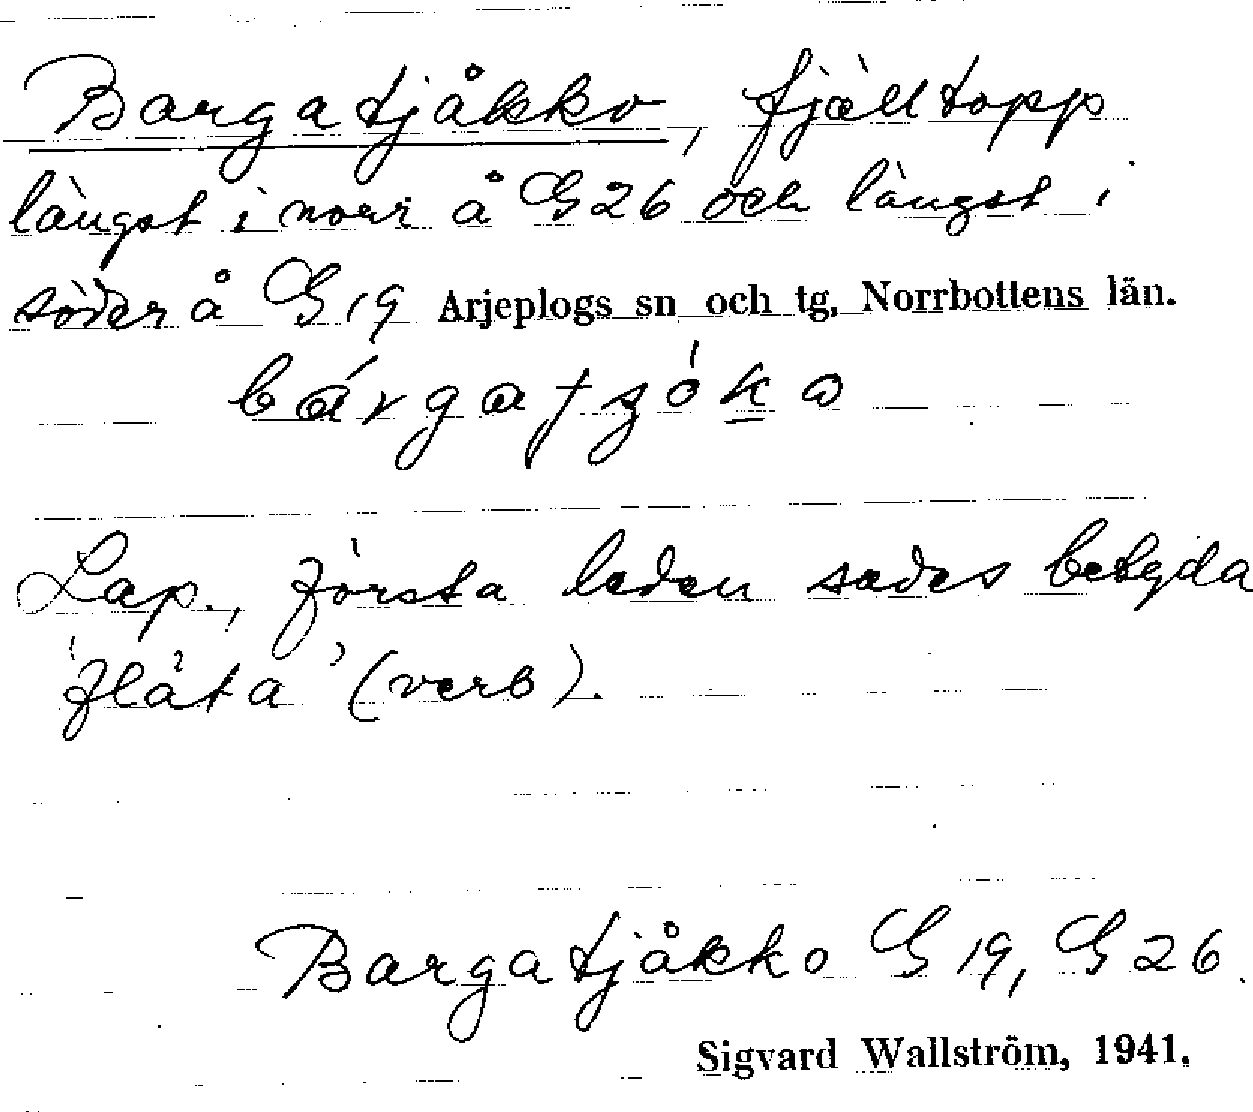 Bargatjåkko, fjälltopp
längst i norr å G26 och längst i
söder å G19 Arjeplogs sn och tg, Norrbottens län.
Lap., första leden sades betyda
'flåta' (verb).
Bargatjåkko G19, G26.
Sigvard Wallström, 1941.